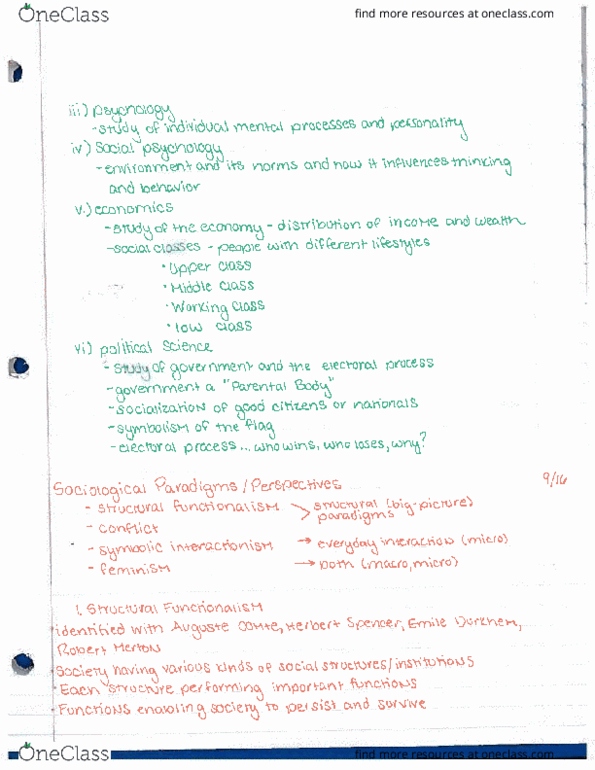 OneClass
find more resources at oneclass.com
iii) psychology
-study of individual mental processes and personality
iv) Social psychology
-environment and its norms and how it influences thinking
and behavior
v.) economics
-study of the economy - distribution of income and wealth
-social classes - people with different lifestyles
• Upper class
• Middle class
• Working class
• low class
vi) political science
- study of government and the electoral process
-government a "Parental Body"
-socialization of good citizens or nationals
-symbolism of the flag
-electoral process... who wins, who loses, why?
Sociological Paradigms/Perspectives 9/16
- structural functionalism > structural (big-picture)
paradigms
- conflict
- symbolic interactionism → everyday interaction (micro)
- feminism → both (macro, micro)
1. Structural Functionalism
• identified with Auguste Comte, Herbert Spencer, Emile Durkhem,
Robert Merton
• Society having various kinds of social structures/institutions
• Each structure performing important functions
• Functions enabling society to persist and survive
OneClass
find more resources at oneclass.com